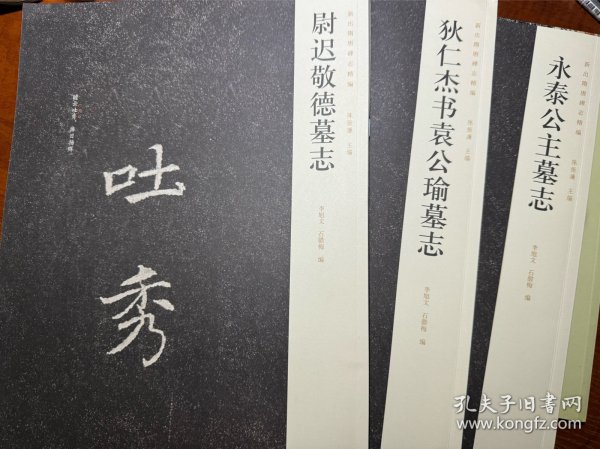 新出隋唐碑志精编
陈振濂 主编
尉迟敬德墓志
李旭文 石歆梅 编
吐秀
新出隋唐碑志精编
陈振濂 主编
狄仁杰书袁公瑜墓志
李旭文 石歆梅 编
新出隋唐碑志精编
陈振濂 主编
永泰公主墓志
李旭文 石歆梅 编
孔夫子旧书网
www.kongfz.com